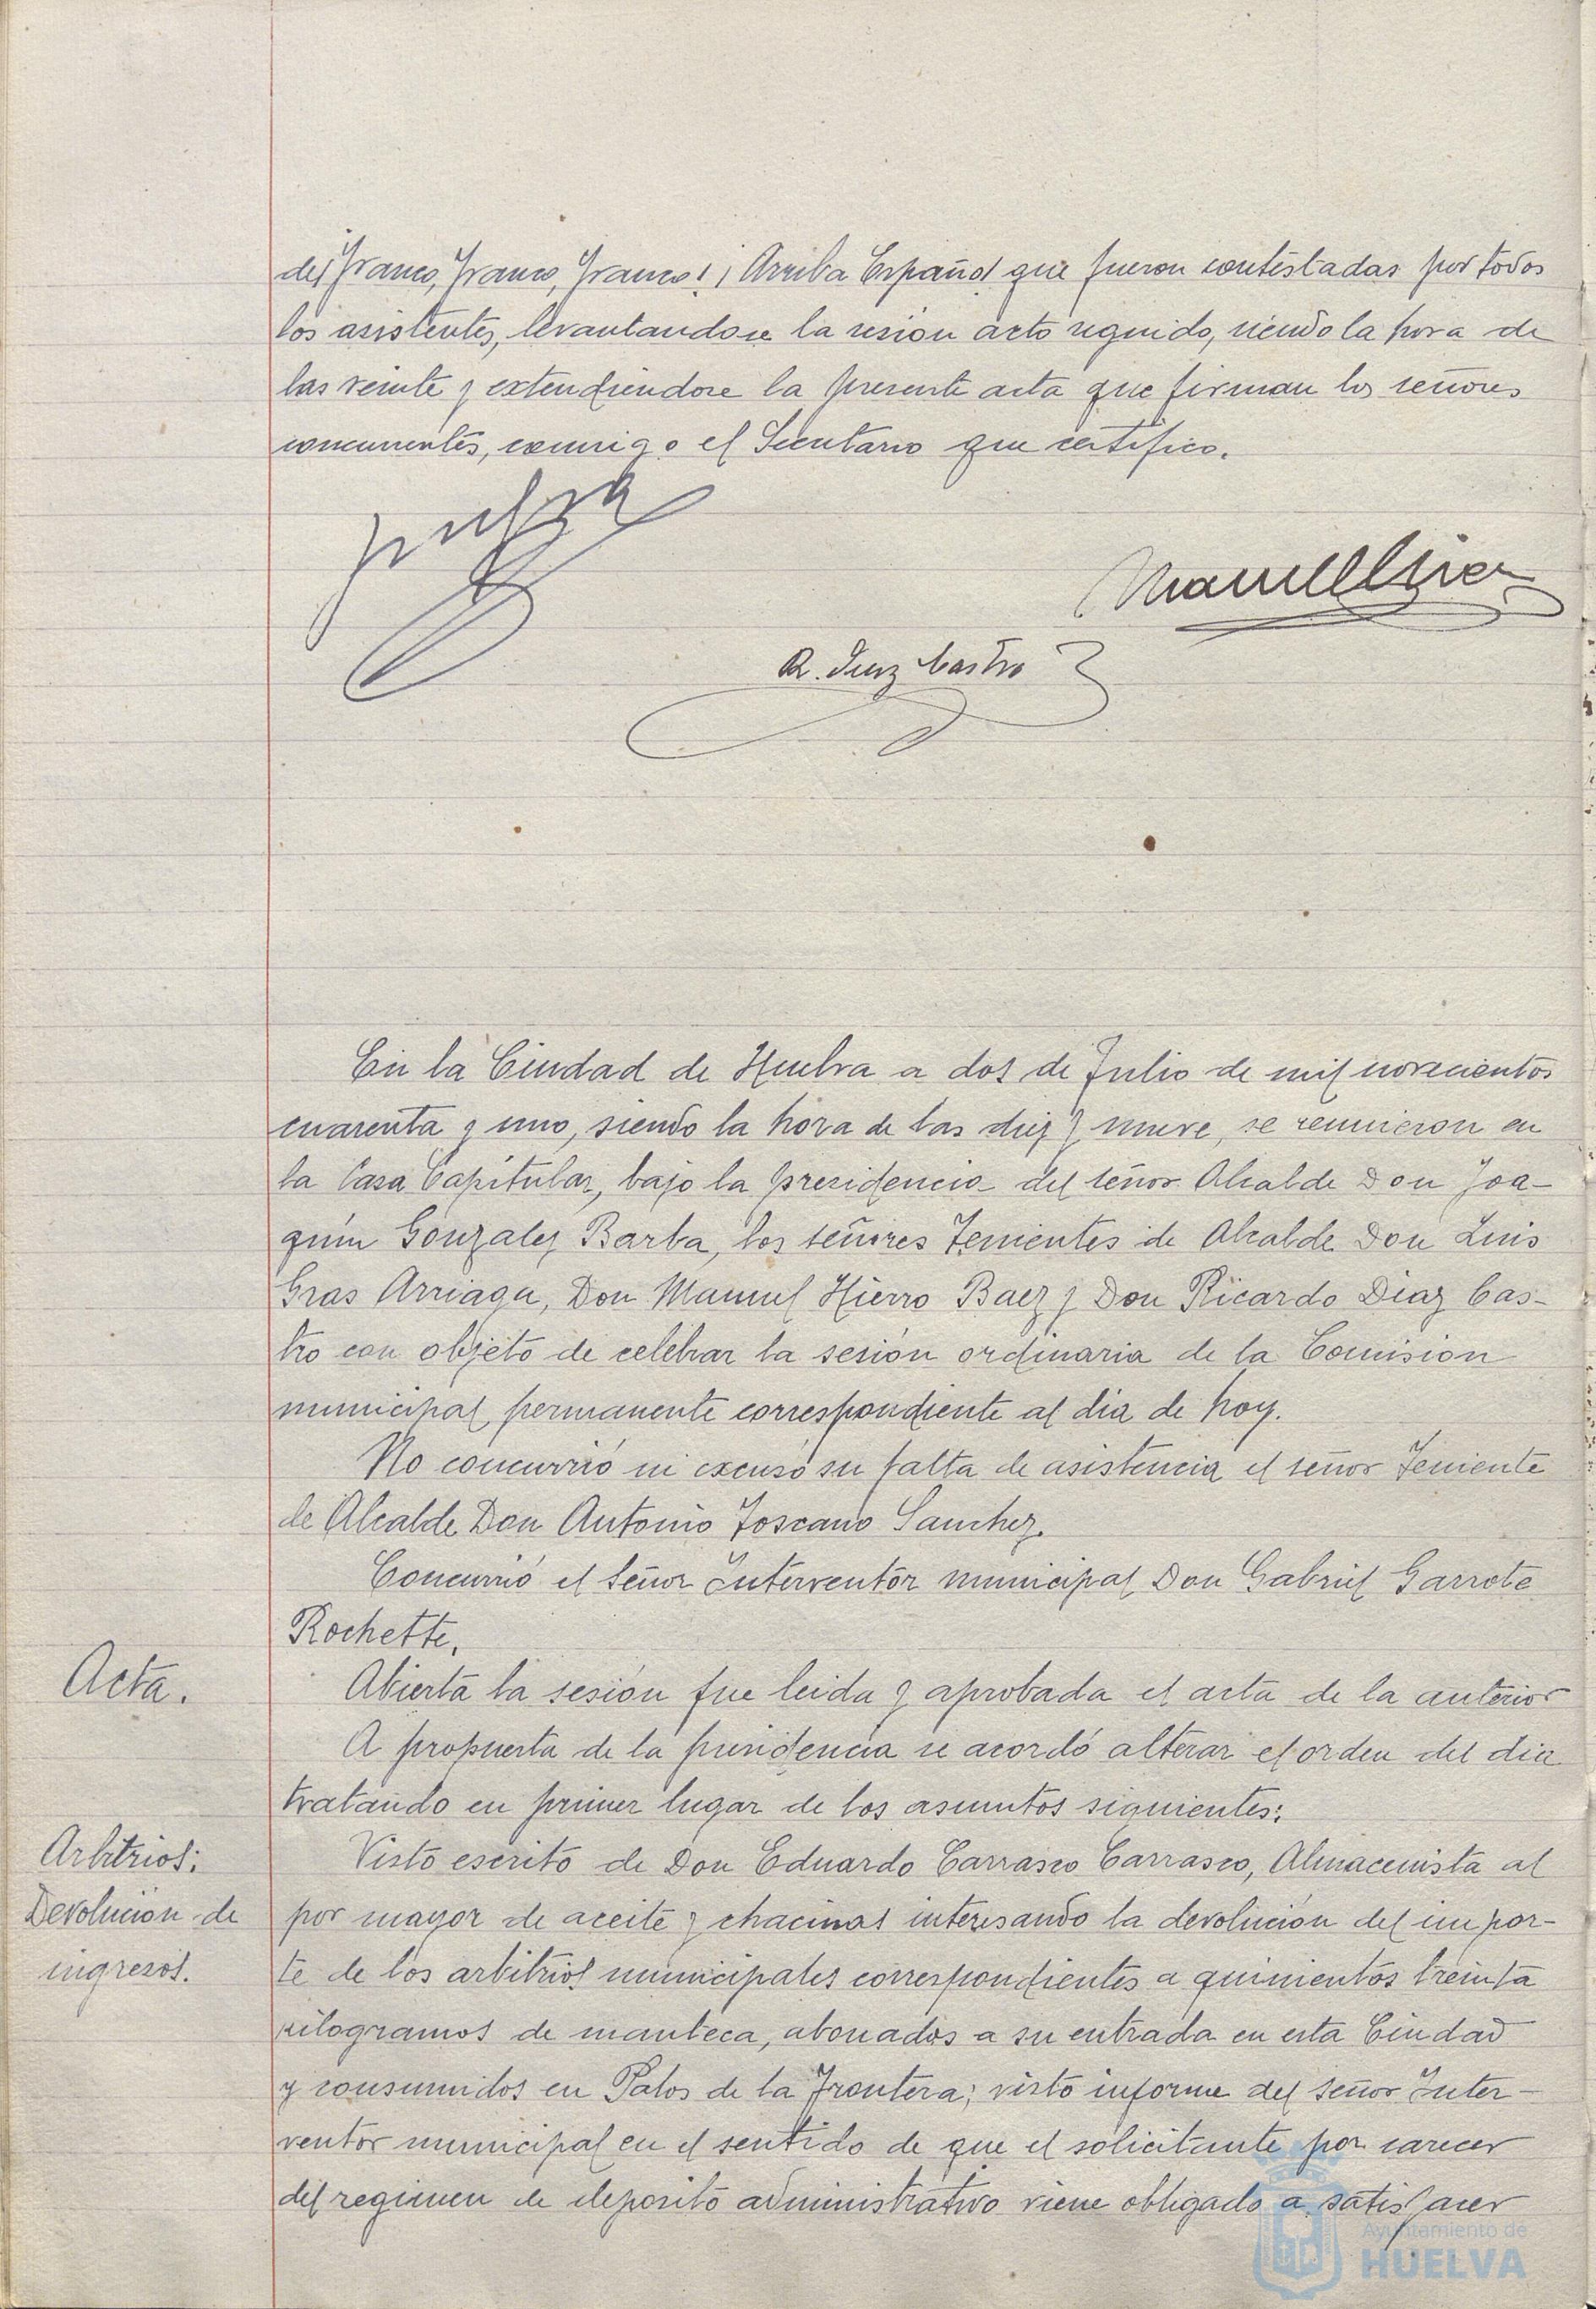 de ¡Franco, Franco, Franco! ¡Arriba España! que fueron contestadas por todos
los asistentes, levantandose la sesión acto seguido, siendo la hora de
las veinte y extendiendose la presente acta que firman los señores
concurrentes, conmigo el Secretario que certifico.
R. Diaz Castro
En la Ciudad de Huelva a dos de Julio de mil novecientos
cuarenta y uno, siendo la hora de las diez y nueve, se reunieron en
la Casa Capitular, bajo la presidencia del señor Alcalde Don Joa-
quin Gonzalez Barba, los señores Tenientes de Alcalde Don Luis
Gras Arriaga, Don Manuel Hierro Baez y Don Ricardo Diaz Cas-
tro con objeto de celebrar la sesión ordinaria de la Comision
municipal permanente correspondiente al dia de hoy.
No concurrió ni excusó su falta de asistencia el señor Teniente
de Alcalde Don Antonio Toscano Sanchez.
Concurrió el Señor Interventor municipal Don Gabriel Garrote
Rochette.
Acta.
Abierta la sesión fue leida y aprobada el acta de la anterior
A propuesta de la presidencia se acordó alterar el orden del dia
tratando en primer lugar de los asuntos siguientes:
Arbitrios:
Devolución de
ingresos.
Visto escrito de Don Eduardo Carrasco Carrasco, Almacenista al
por mayor de aceite y chacinas interesando la devolución del impor-
te de los arbitrios municipales correspondientes a quinientos treinta
kilogramos de manteca, abonados a su entrada en esta Ciudad
y consumidos en Palos de la Frontera; visto informe del señor Inter-
ventor municipal en el sentido de que el solicitante por carecer
del regimen de deposito administrativo viene obligado a satisfacer
Ayuntamiento de
HUELVA